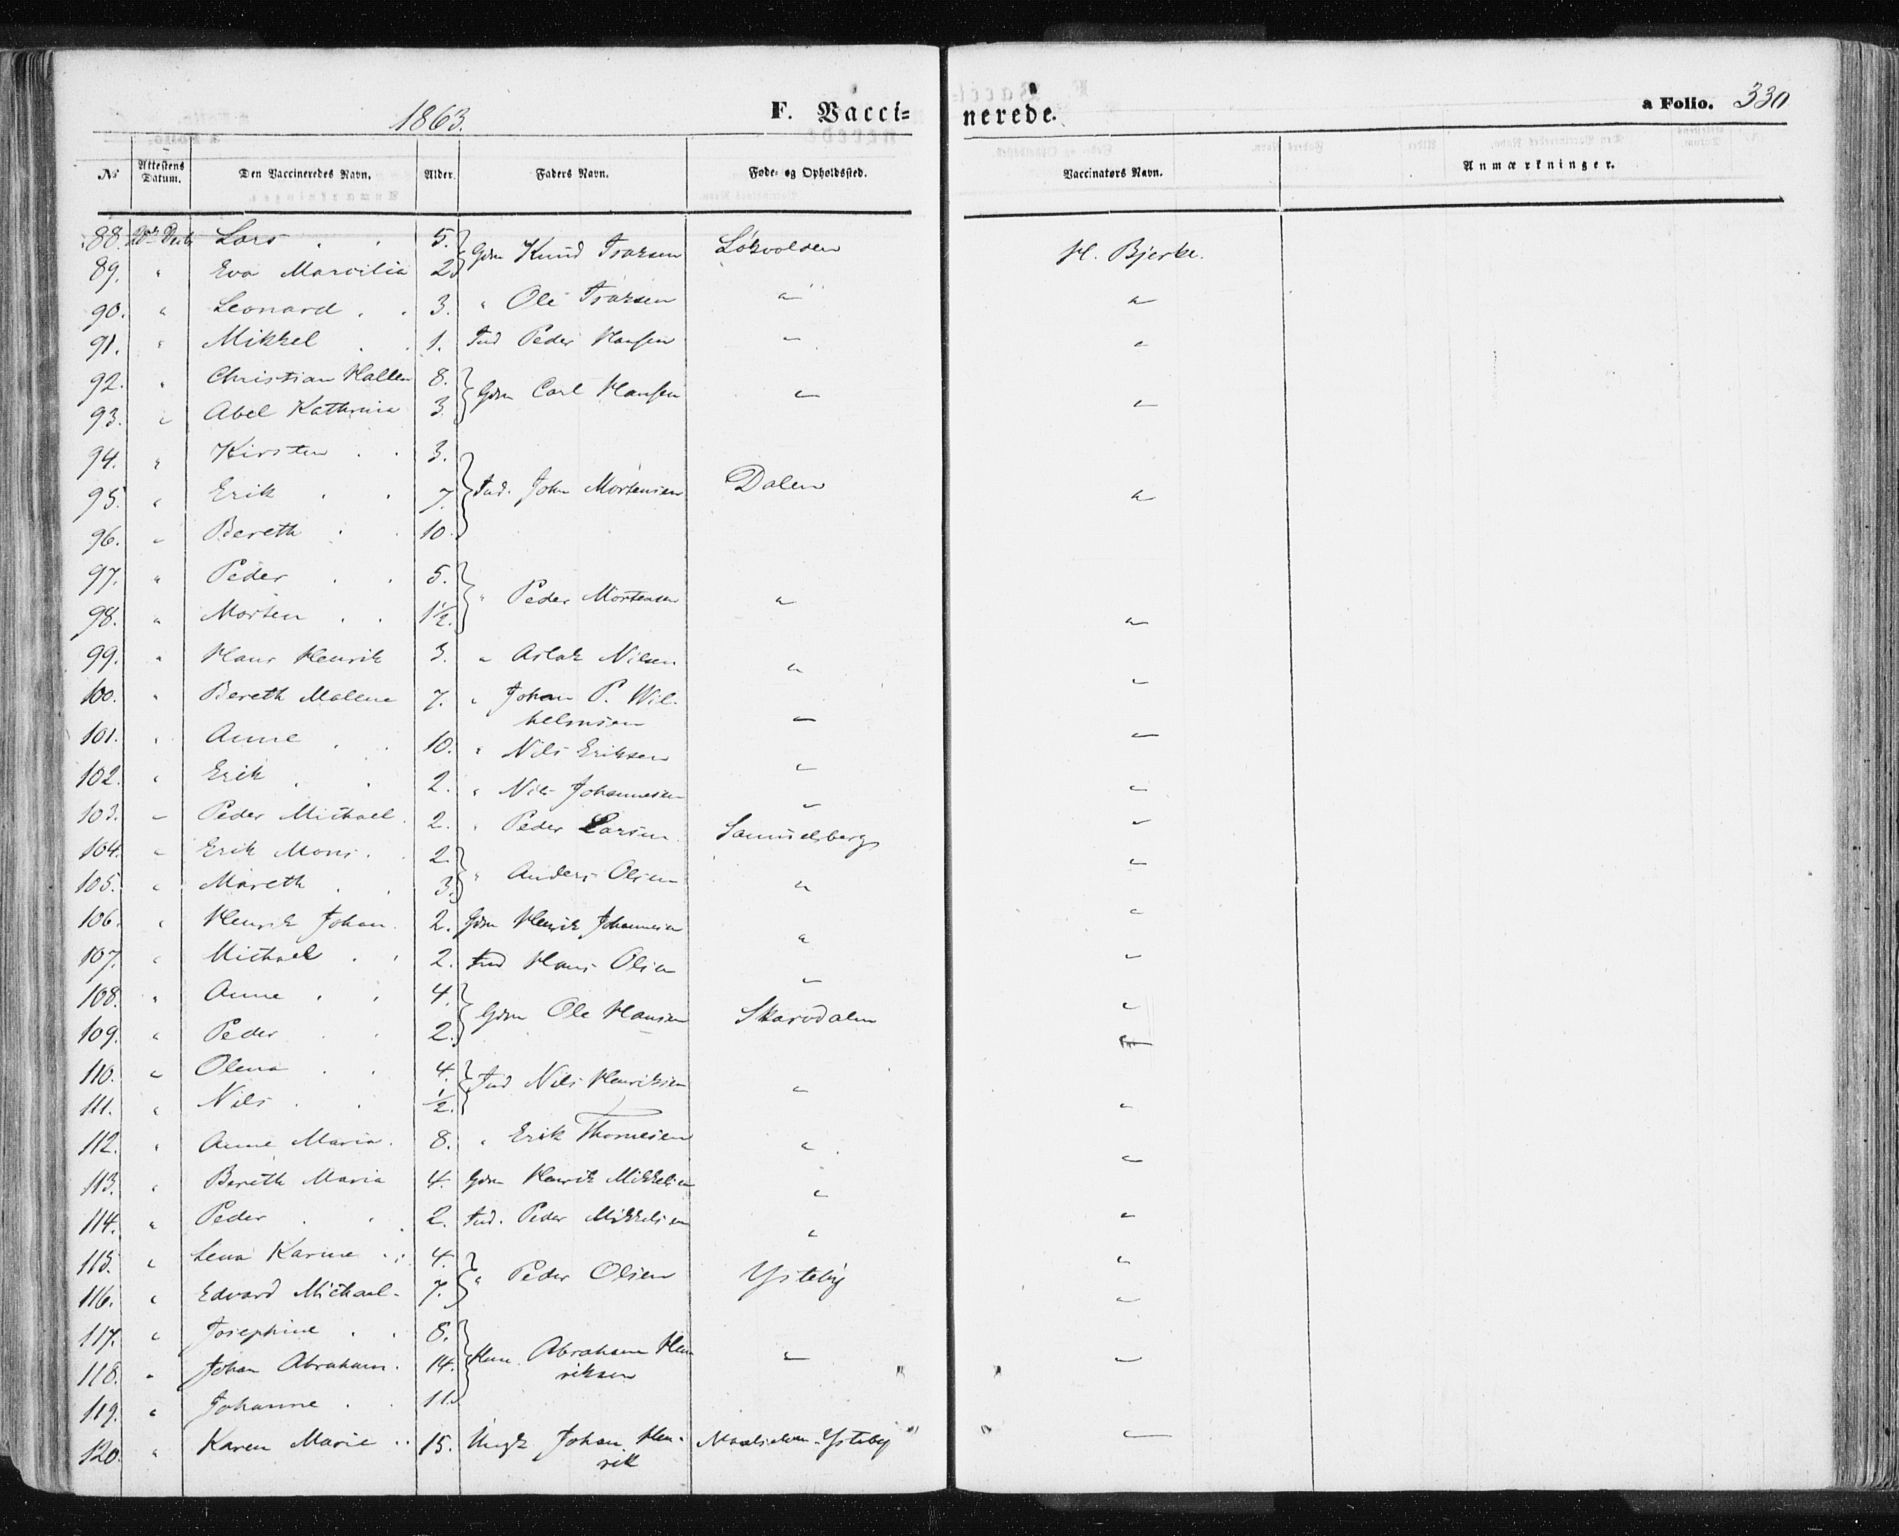 1863. F. Vacci= nerede. a Folio. 330
No Attestens Datum. Den Vaccineredes Navn. Alder. Faders Navn. Føde- og Opholdssted. Vaccinators Navn. Anmærkninger.
88. Lars . . 5. Gdm Knud Isaksen Løkvolden H. Bjerke.
89. " Eva Marcilia 2
90. " Leonard . . 3. " Ole Isaksen " "
91. " Mikkel . . 1. Ind Peder Hansen " "
92. " Christian Hallen 8. Gdm Carl Hansen " "
93. " Abel Kathrina 3.
94. " Kirsten . . 3.
95. " Erik . . 7. Ind. John Mortensen Dalen "
96. " Bereth . . 10.
97. " Peder . . 5. " Peder Mortensen " "
98. " Morten . . 1½.
99. " Hans Henrik 3. " Aslak Nilsen " "
100. " Bereth Malene 7. " Johan P. Wil-
helmsen "
101. " Anne . . 10. " Nils Eriksen " "
102. " Erik . . 2. " Nils Johannesen " "
103. " Peder Michael. 2. " Peder Larsen Samuelsberg "
104. " Erik Mons. . 2. " Anders Olsen " "
105. " Mareth . . 3.
106. " Henrik Johan. 2. Gdm Henrik Johannesen " "
107. " Michael . . 2. Ind Hans Olsen " "
108. " Anne . . 4. Gdm Ole Hansen Skarvdalen "
109. " Peder . . 2.
110. " Olena . . 4. Ind Nils Henriksen " "
111. " Nils . . ½.
112. " Anne Maria. 8. " Erik Thomesen " "
113. " Bereth Maria 4. Gdm Henrik Mikkelsen " "
114. " Peder . . 2. Ind. Peder Mikkelsen " "
115. " Lena Karine . . 4. " Peder Olsen Ysteby "
116. " Edvard Michael. 7.
117. " Josephine . . 8.
118. " Johan Abraham. 14. Abraham Hen
riksen " "
119. " Johanne . . 11.
120. " Karen Marie . . 15. Ungk Johan Hen-
rik Ysteby "